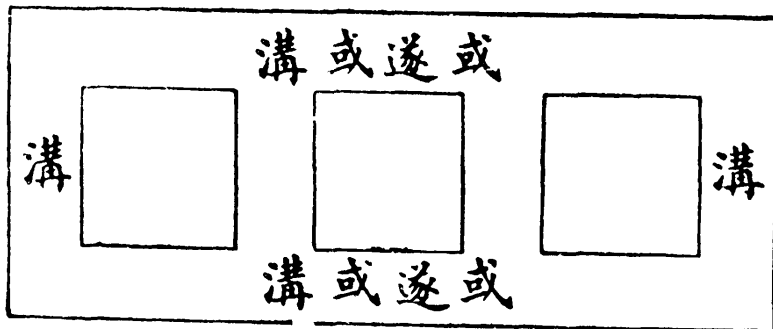 或遂或溝
溝
溝
或遂或溝